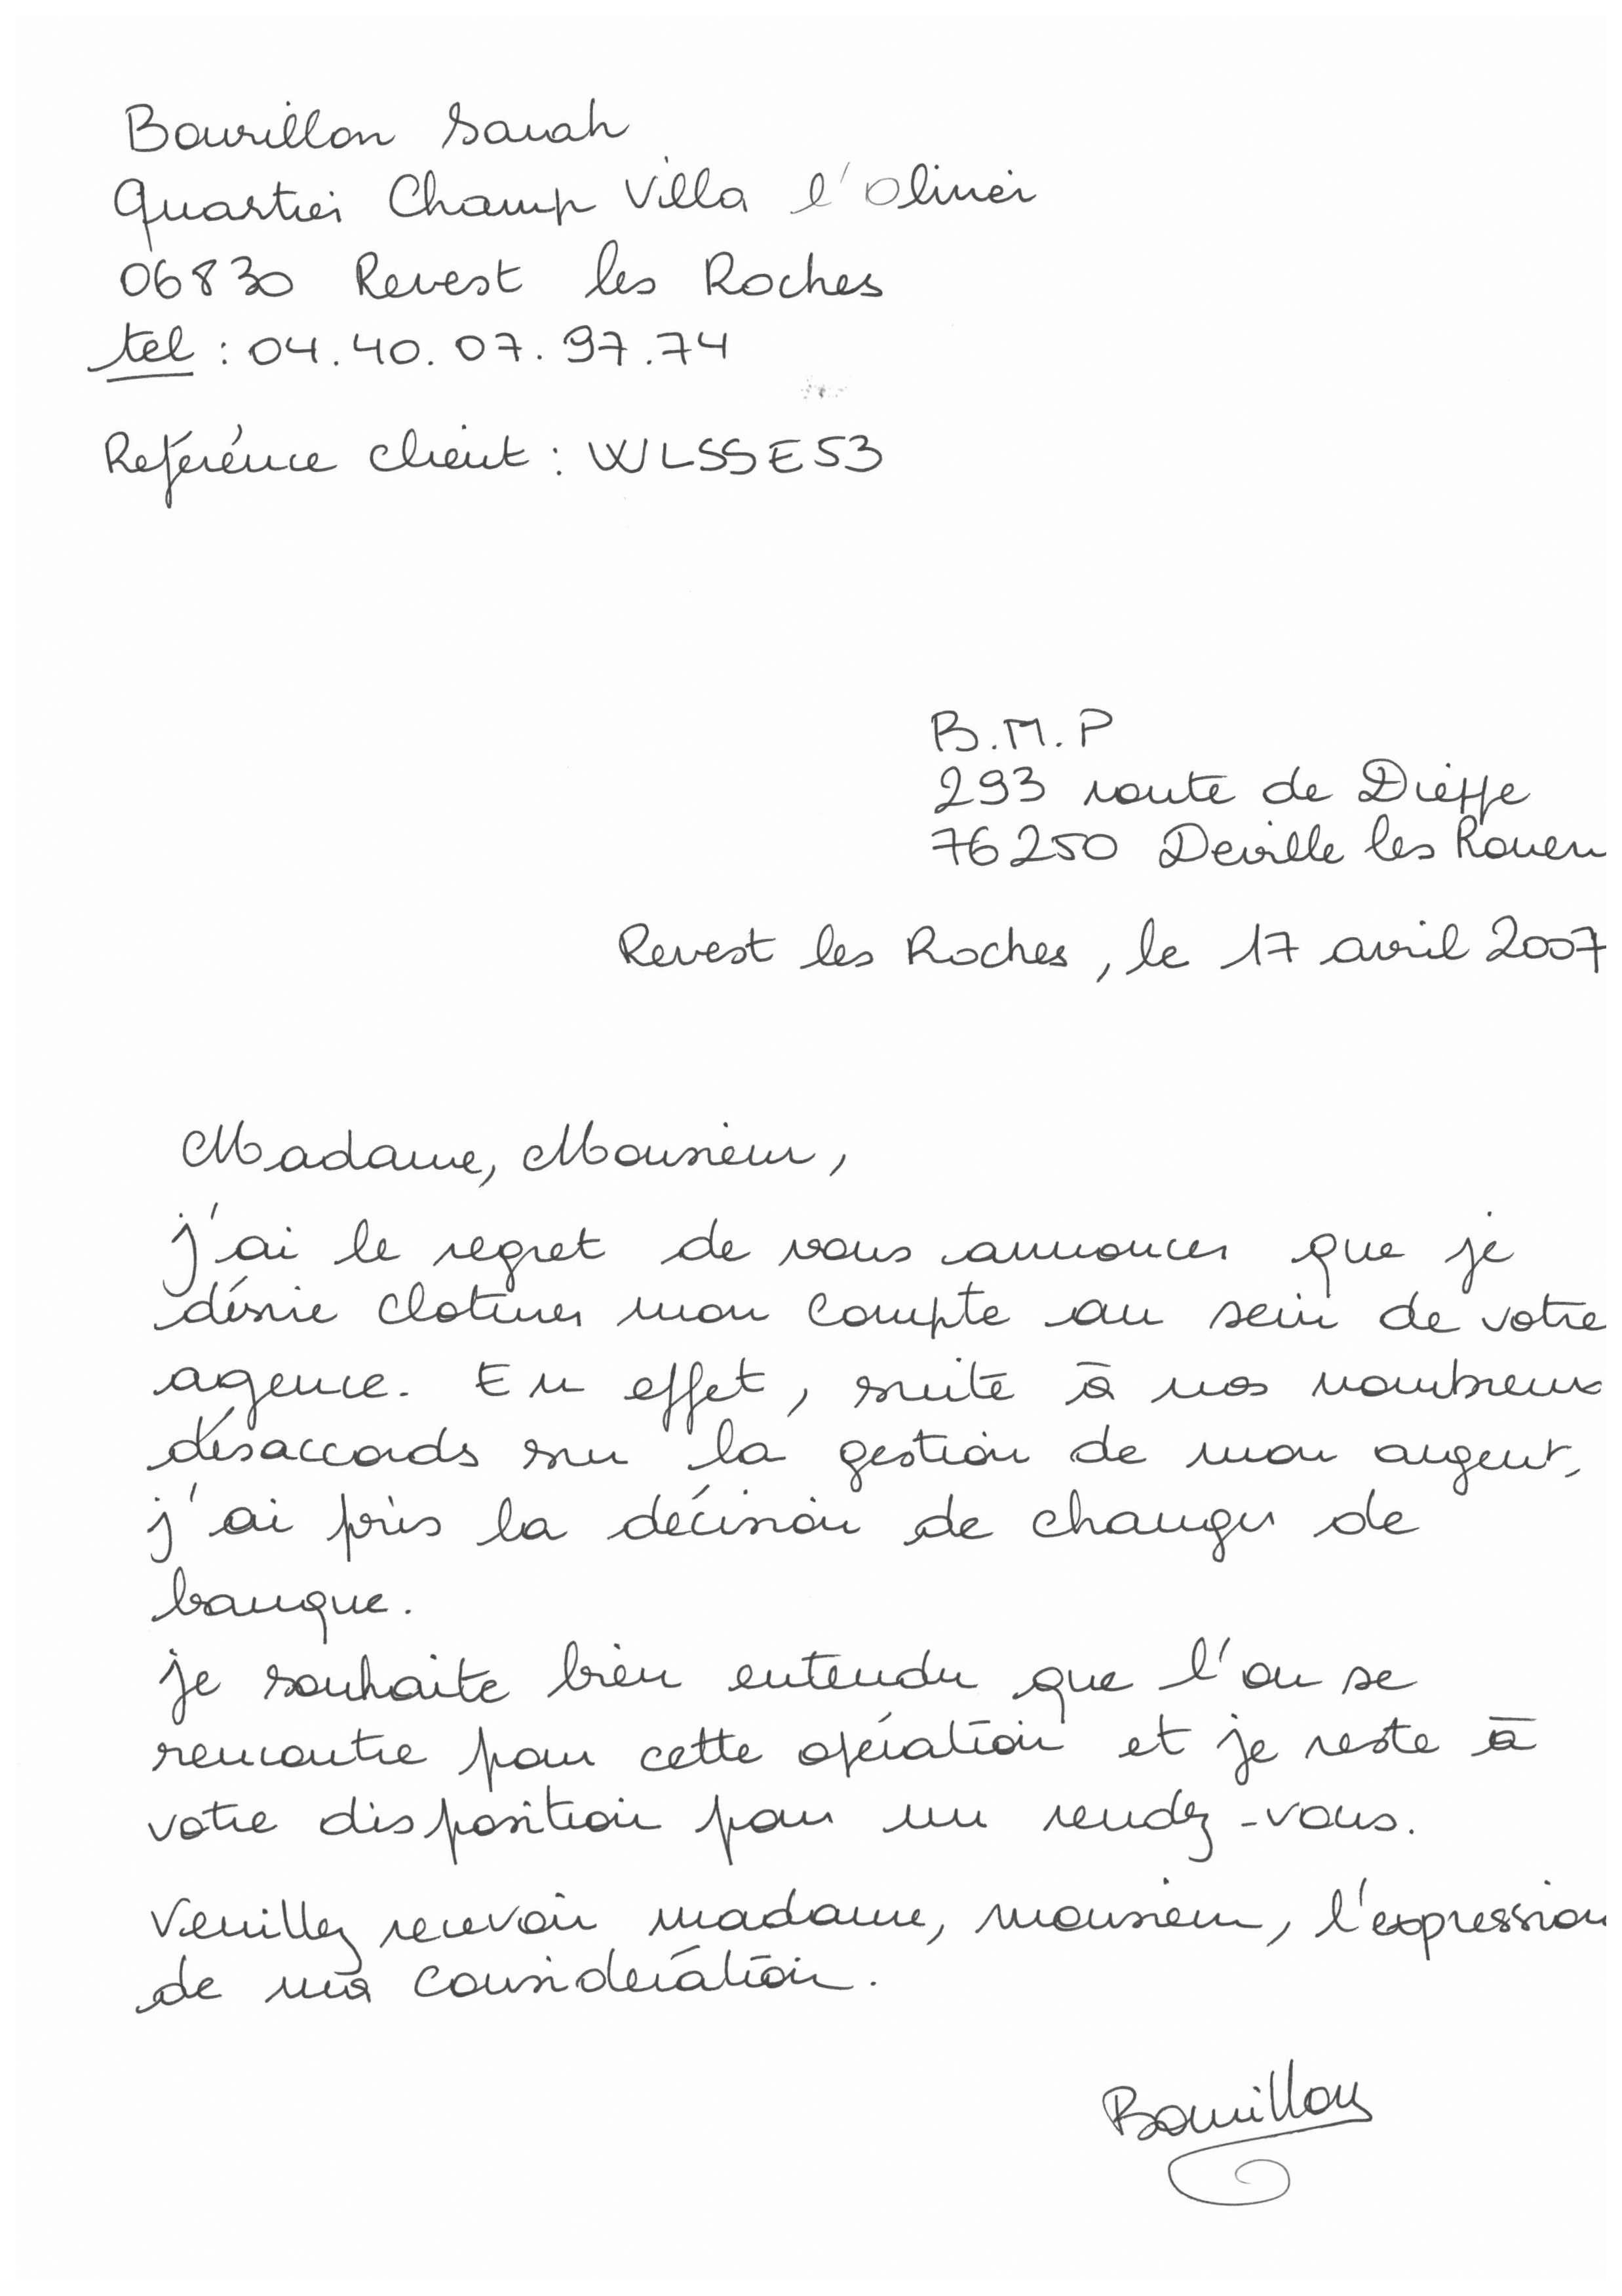 Bourillon Sarah
Quartier Champ Villa l'Olivier
06830 Revest les Roches
tel : 04.40.07.97.74
Reférence client : WLSSE53
B.M.P
293 route de Dieppe
76250 Deville les Rouen
Revest les Roches, le 17 avril 2007
Madame, Monsieur,
j'ai le regret de vous annoncer que je
désire cloturer mon compte au sein de votre
agence. En effet, suite à nos nombreux
désaccords sur la gestion de mon argent,
j'ai pris la décision de changer de
banque.
je souhaite bien entendu que l'on se
rencontre pour cette opération et je reste à
votre disposition pour un rendez-vous.
Veuillez recevoir madame, monsieur, l'expression
de ma considération.
Bourillon